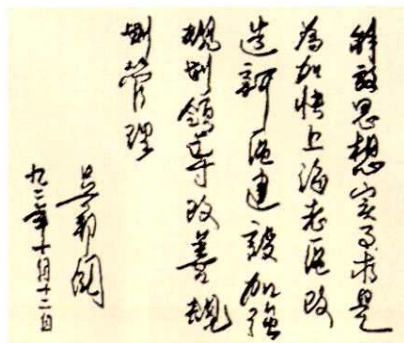 解放思想实事求是
为加快上海老区改
造新区建设加强
规划领导改善规
划管理
吴邦国
九二年十月十二日